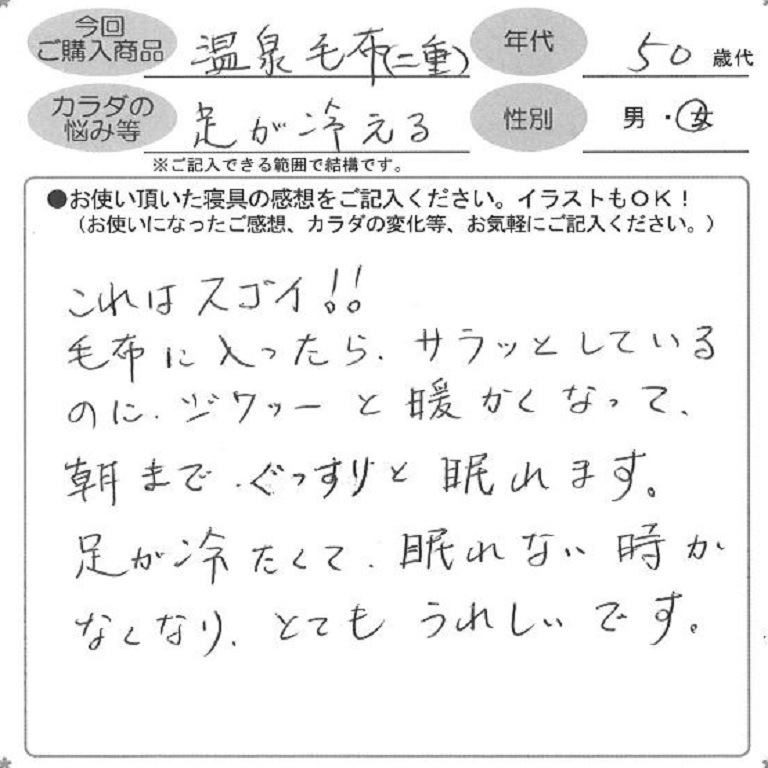 今回
ご購入商品
温泉毛布(二重)
年代
50歳代
カラダの
悩み等
足が冷える
性別
男・女
※ご記入できる範囲で結構です。
●お使い頂いた寝具の感想をご記入ください。イラストもOK!
(お使いになったご感想、カラダの変化等、お気軽にご記入ください。)
これはスゴイ!!
毛布に入ったら、サラッとしている
のに、ジワッーと暖かくなって、
朝まで、ぐっすりと眠れます。
足が冷たくて、眠れない時が
なくなり、とてもうれしいです。